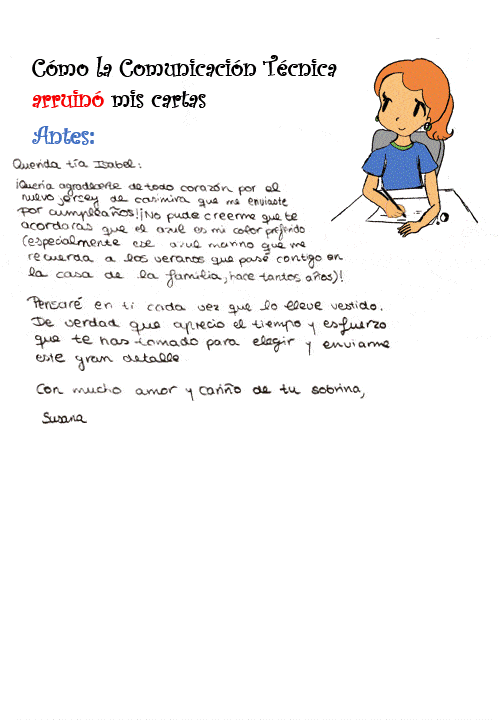 Cómo la Comunicación Técnica
arruinó mis cartas
Antes:
Querida tía Isabel:
¡Quería agradecerte de todo corazón por el
nuevo jersey de casimira que me enviaste
por cumpleaños!¡No pude creerme que te
acordaras que el azul es mi color preferido
(especialmente ese azul marino que me
recuerda a los veranos que pasé contigo en
la casa de la familia, hace tantos años)!
Pensaré en ti cada vez que lo lleve vestido.
De verdad que aprecio el tiempo y esfuerzo
que te has tomado para elegir y enviarme
este gran detalle
Con mucho amor y cariño de tu sobrina,
Susana